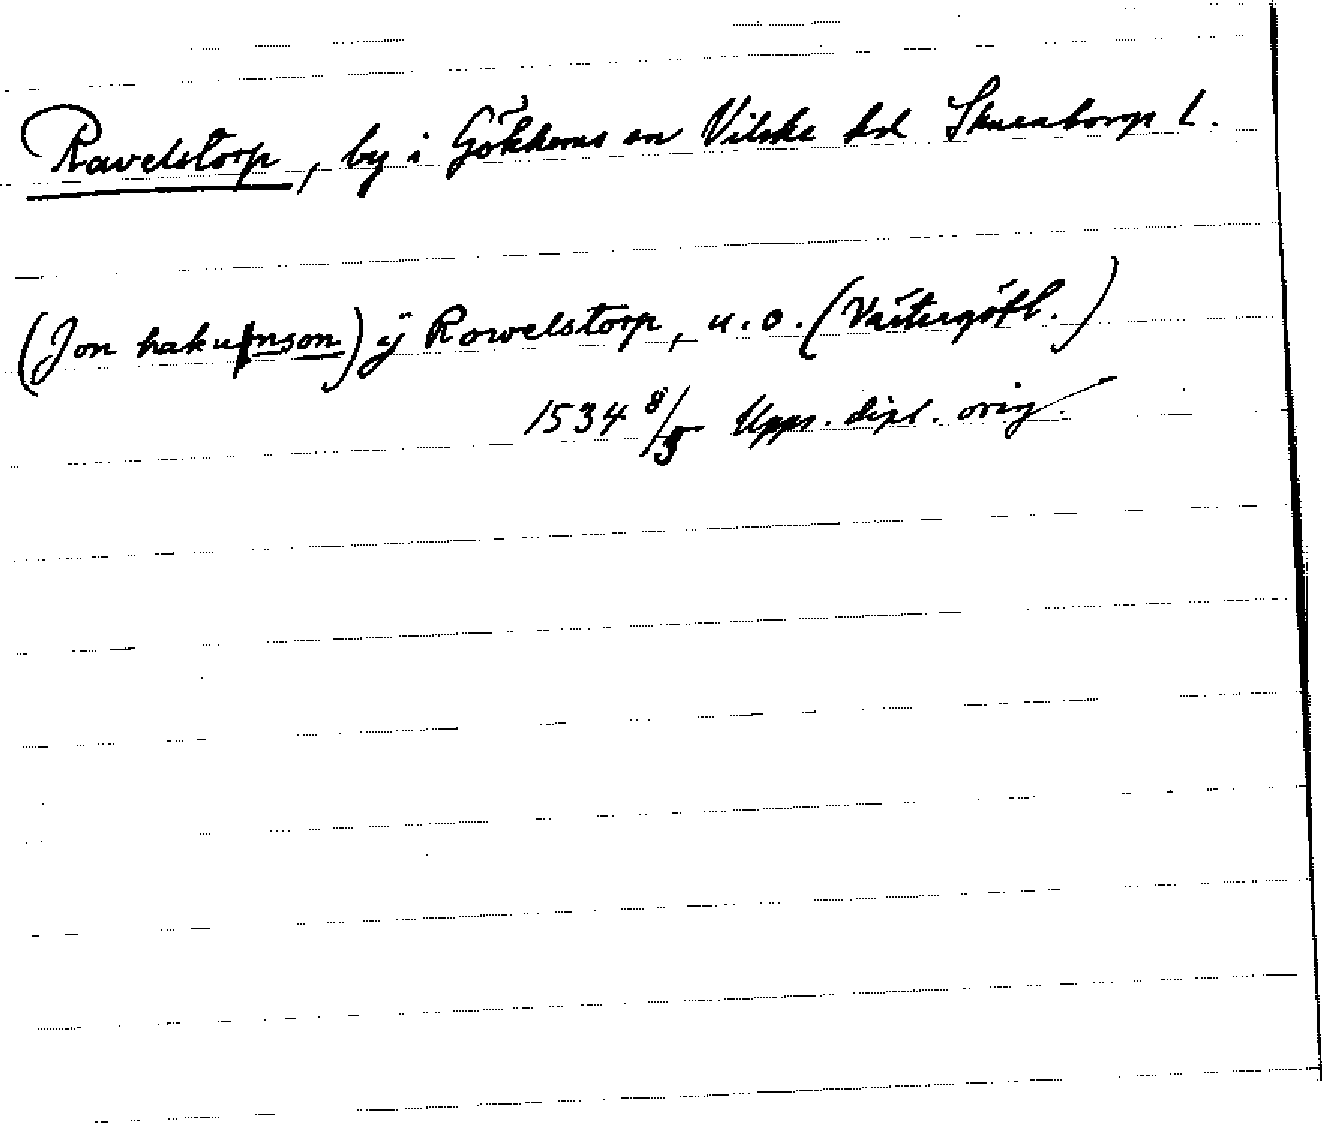 Ravelstorp, by i Gökhems sn Vilske hd Skaraborgs l.
(Jon hakunson) ÿ Rowelstorp, u. o. (Västergötl.)
1534 8/5 Upps. dipl. orig.